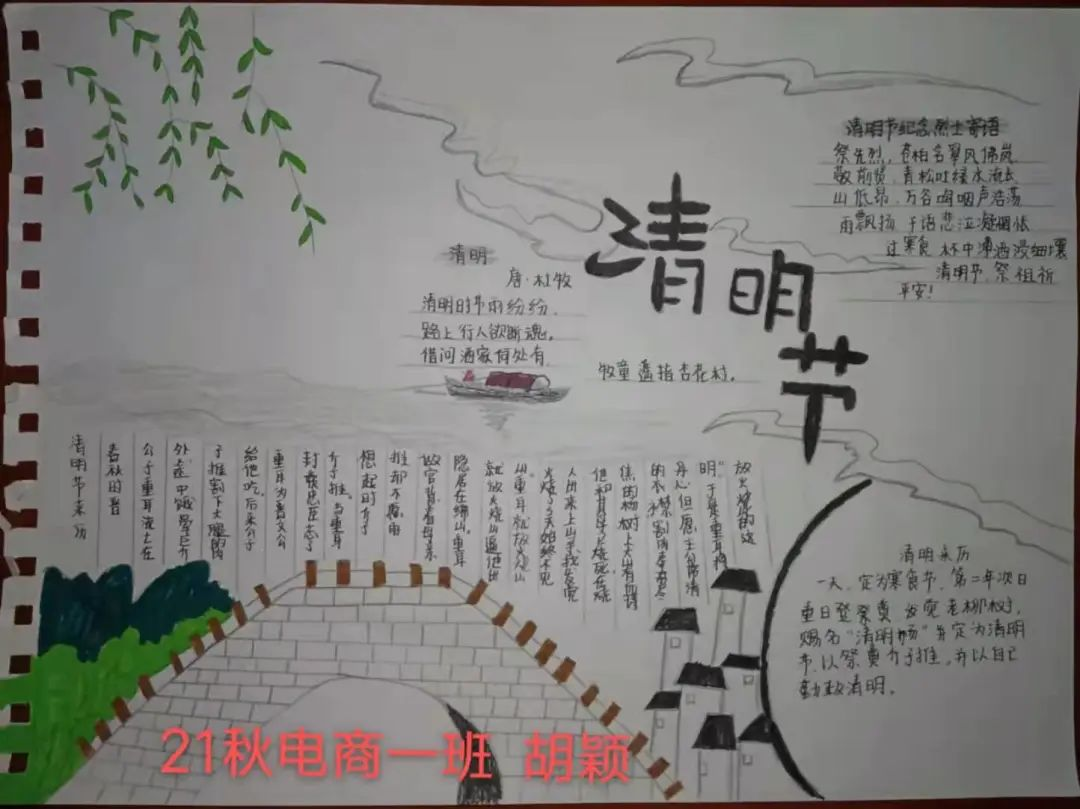 清明节
清明节纪念烈士寄语
祭先烈,苍柏名翠风佛岚
敬前贤,青松吐绿水流长
山低昂,万谷呜咽声浩荡
雨飘扬 千语悲泣凝惆怅
过寒食 杯中薄酒浸细壤
清明节,祭祖祈
平安!
清明
唐·杜牧
清明时节雨纷纷,
路上行人欲断魂。
借问酒家何处有
牧童遥指杏花村。
清明节来历
春秋时晋
公子重耳流亡在
外途中饿晕已介
子推割下大腿的肉
给他吃,后来公子
重耳为晋文公
封最忠臣忘了
介子推,当重耳
想起时介子
推却不愿
做官背着母亲
隐居在绵山。重耳
就放火烧山逼他出
山重耳就放火烧山
火烧了3天始终不见
人出来上山寻找发现
他和母亲已烧死在烧
焦的柳树上大山有血诗
的衣襟割肉奉君尽
丹心但愿主公常清
明"于是重耳将
放火烧的这
清明来历
一天,定为寒食节,第二年次日
重日登祭奠 发觉老柳树,
赐名"清明柳"并定为清明
节,以祭奠介子推,并以自己
勤政清明。
21秋电商一班 胡颖